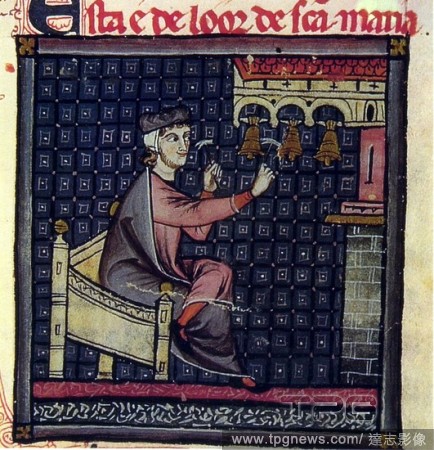 Esta e de loor de sca. maria
TPG
www.tpgnews.com/ 達志影像